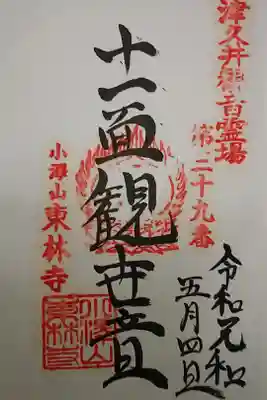 津久井観音霊場
第二十九番
十一面観世音
小澤山
東林寺
令和元和
五月四日